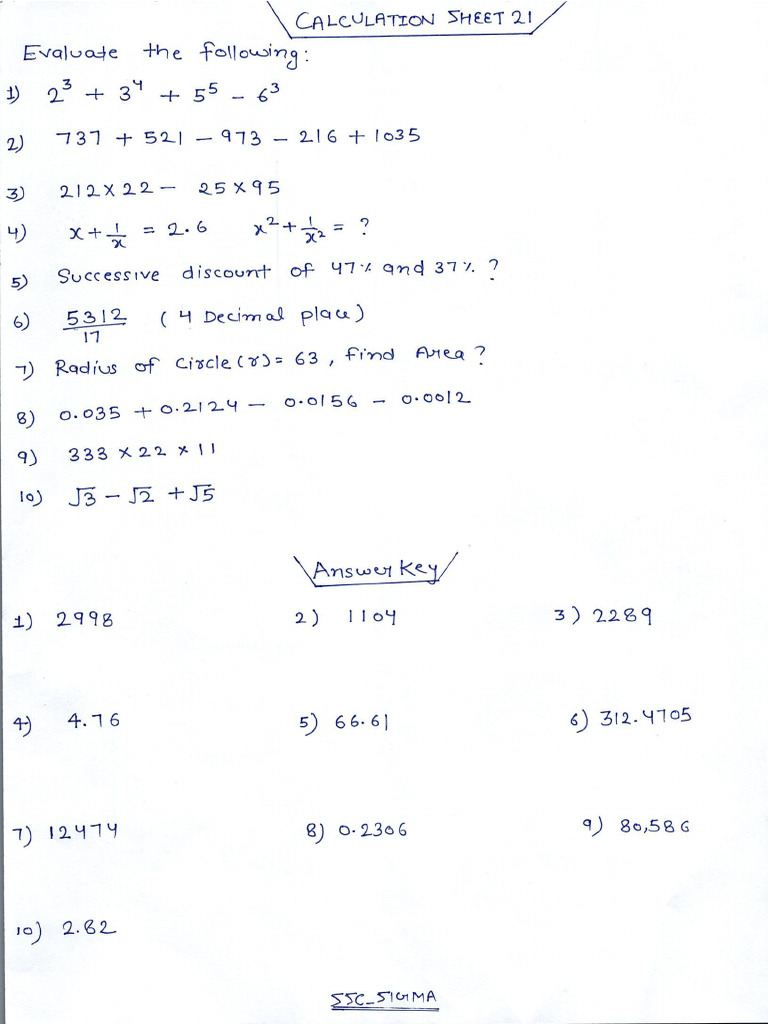 CALCULATION SHEET 21
Evaluate the following:
1) 2³ + 3⁴ + 5⁵ - 6³
2) 737 + 521 - 973 - 216 + 1035
3) 212 x 22 - 25 x 95
4) x + 1/x = 2.6 x² + 1/x² = ?
5) Successive discount of 47% and 37% ?
6) 5312/17 (4 Decimal place)
7) Radius of Circle (r) = 63, find Area ?
8) 0.035 + 0.2124 - 0.0156 - 0.0012
9) 333 x 22 x 11
10) √3 - √2 + √5
Answer Key
1) 2998 2) 1104 3) 2289
4) 4.76 5) 66.61 6) 312.4705
7) 12474 8) 0.2306 9) 80,586
10) 2.82
SSC_SIGMA